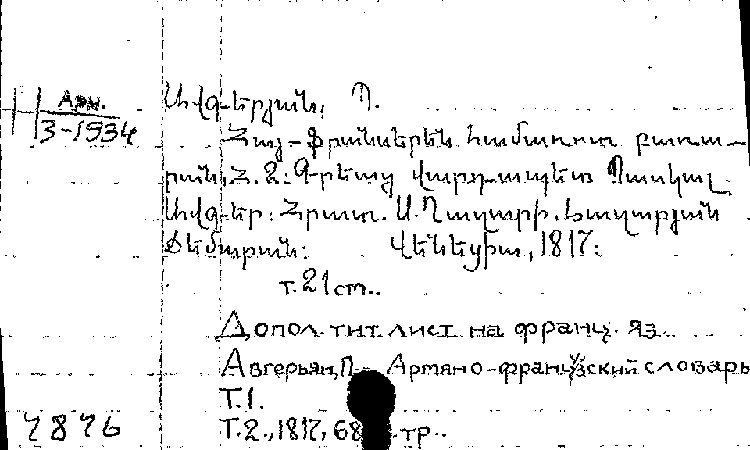 Арм.
3-1934
Ավգերյան, Պ.
Հայ-ֆրանսերեն համառոտ բառա-
րան, Հ. 2: Գրեաց վարդապետ Պասկալ
Ավգեր: Հրատ. Ս. Ղազարի. Խաղարյան
Ճեմարան: Վենետիկ, 1817:
т. 21 cm..
Допол. тит. лист на франц. яз.
Авгерьян, П. Армяно-французский словарь
Т.1.
Т.2., 1817, тр..
7876